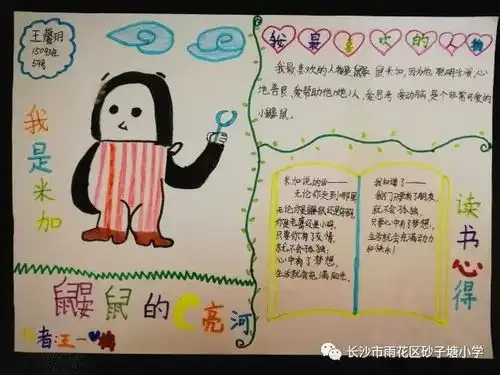 王馨玥
1504班
59号
我最喜欢的人物
我最喜欢的人物是鼹鼠米加,因为他聪明活泼,心
地善良,爱帮助他人,爱思考,爱动脑,是个非常可爱的
小鼹鼠。
我
是
米
加
米加说的话——
无论你走到哪里,
无论你是鼹鼠还是刺猬,
你是
只要你有了友情,
就不会孤独;
心中有了梦想,
生活就会充满阳光。
我知道了——
我们只要有了朋友,
就不会孤独,
只要心中有了梦想,
生活就会充满动力
和快乐!
读
书
心
得
鼹鼠的月亮河
作者:王一梅
长沙市雨花区砂子塘小学